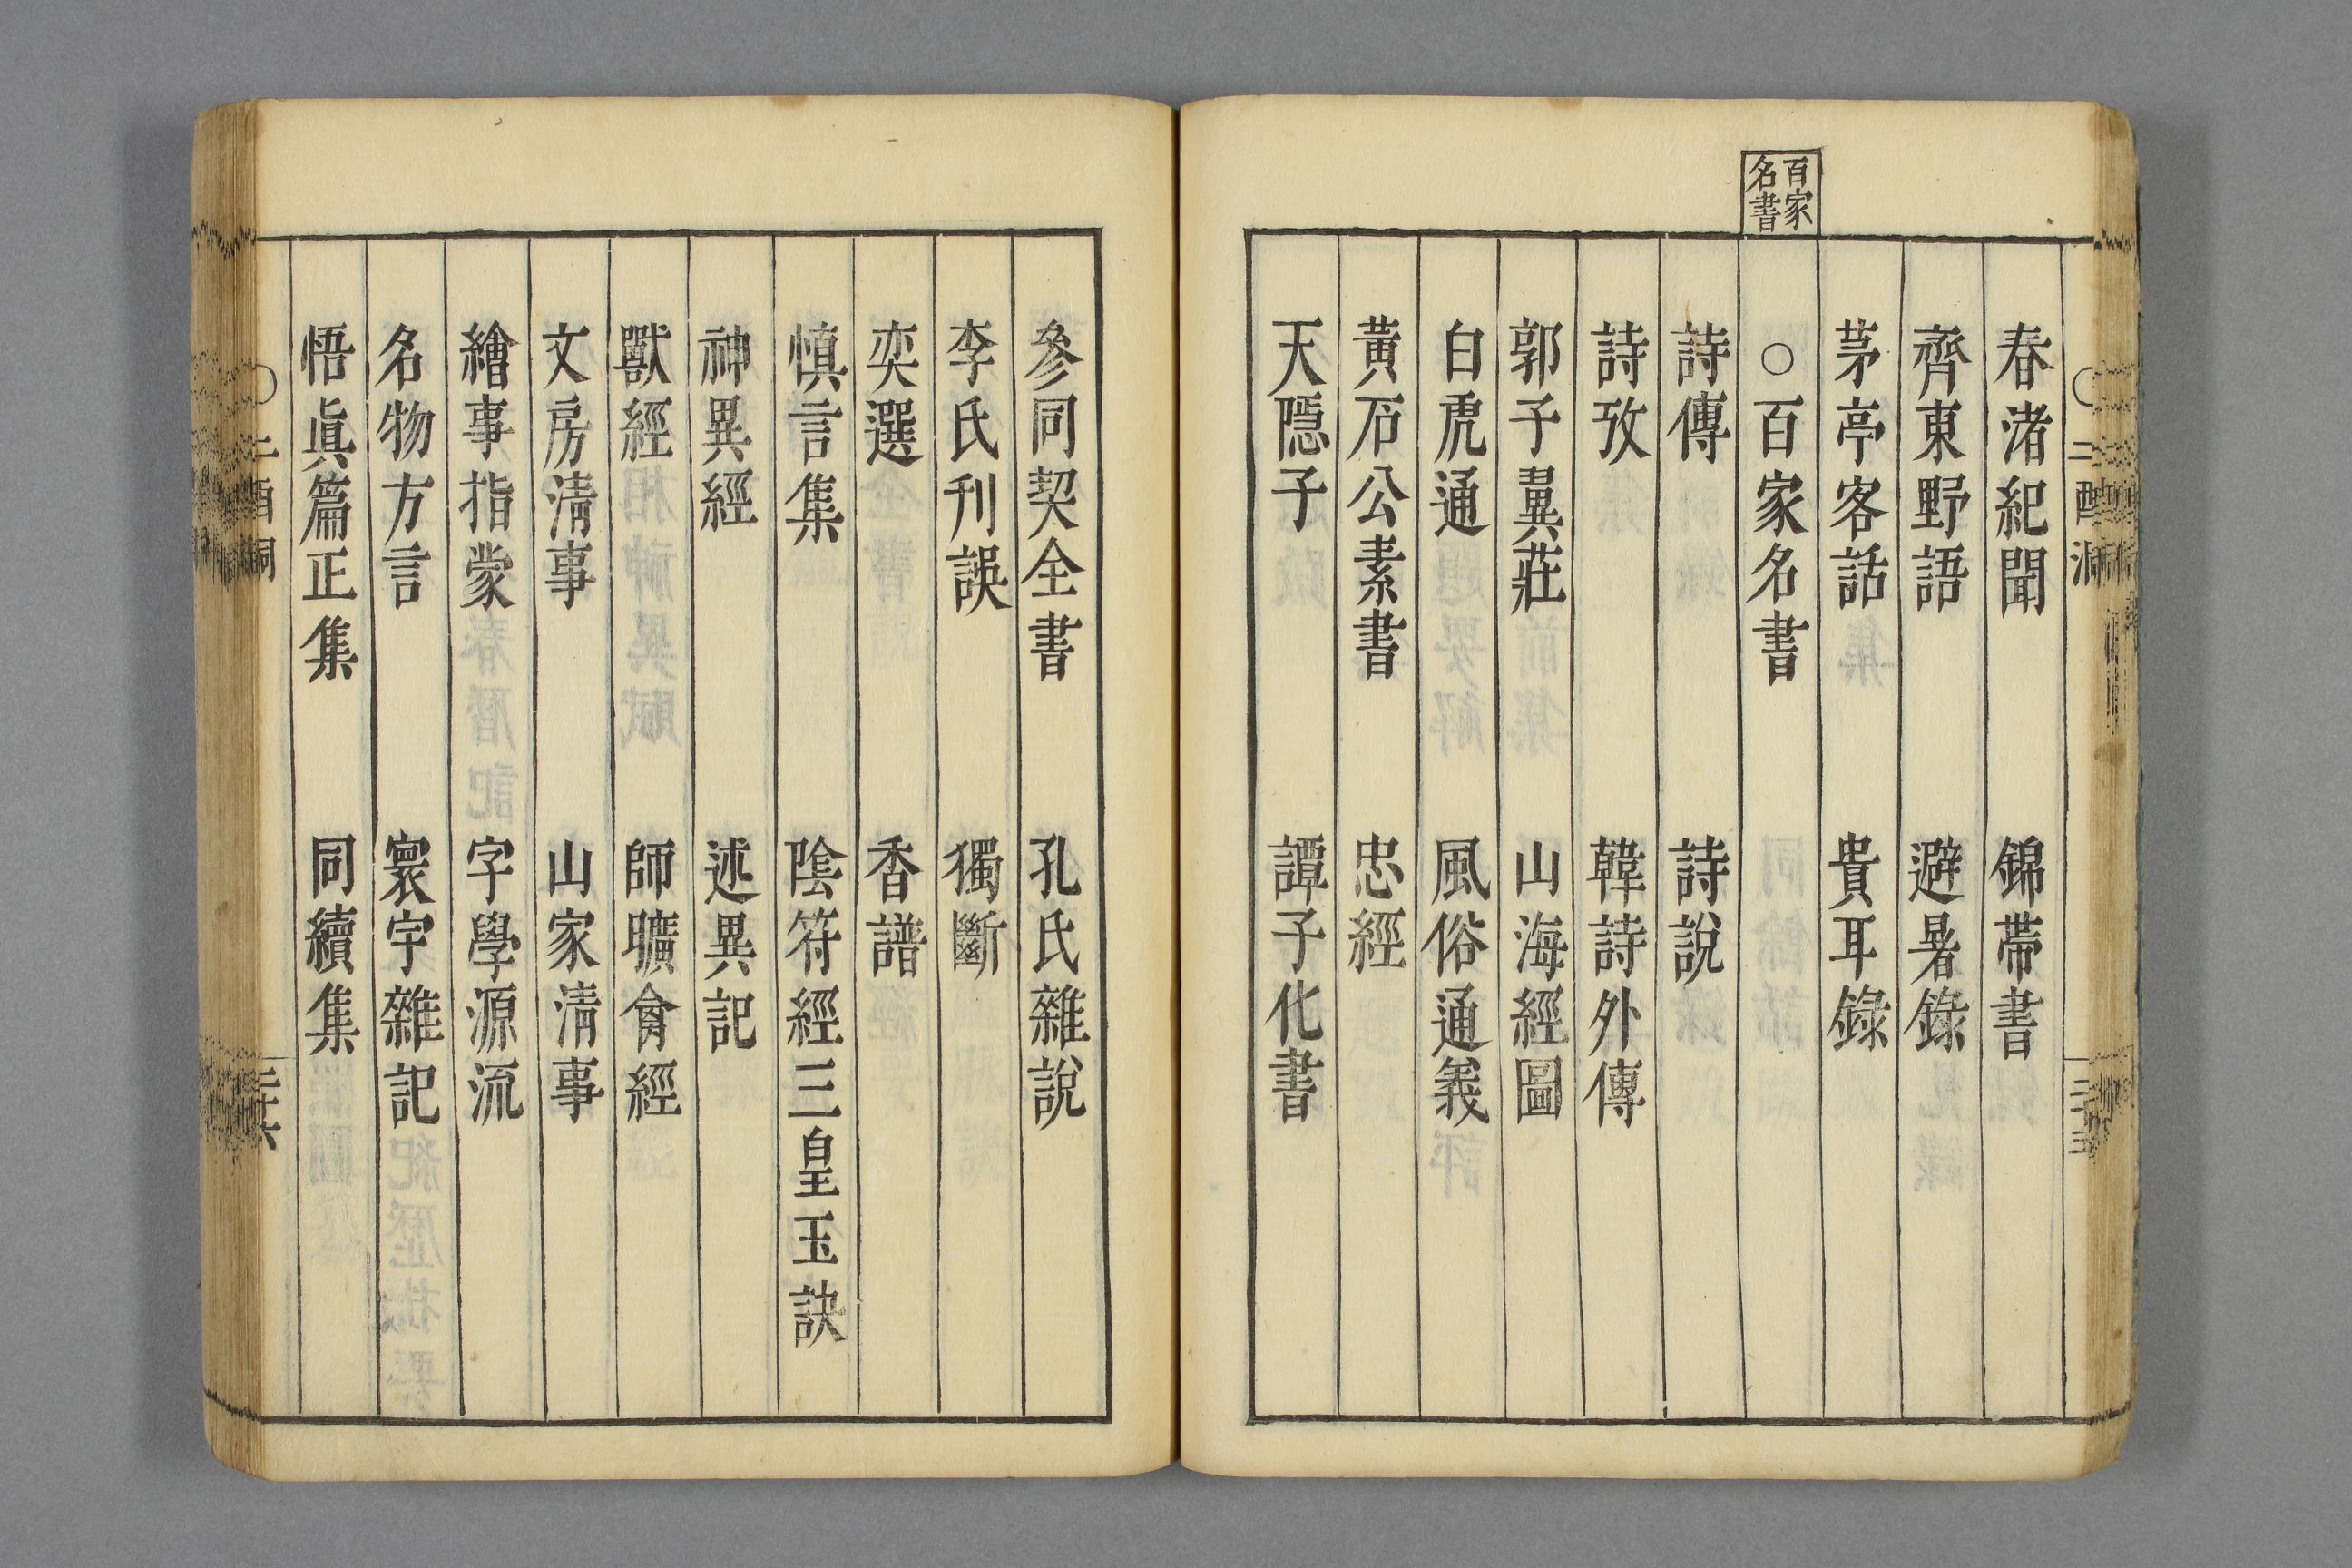 春渚紀聞　錦帯書
齊東野語　避暑錄
茅亭客話　貴耳錄
百家名書
○百家名書
詩傳　詩說
詩攷　韓詩外傳
郭子翼莊　山海經圖
白虎通　風俗通義
黃石公素書　忠經
天隱子　譚子化書
參同契全書　孔氏雜說
李氏刊誤　獨斷
奕選　香譜
慎言集　陰符經三皇玉訣
神異經　述異記
獸經　師曠禽經
文房淸事　山家淸事
繪事指蒙　字學源流
名物方言　寰宇雜記
悟眞篇正集　同續集